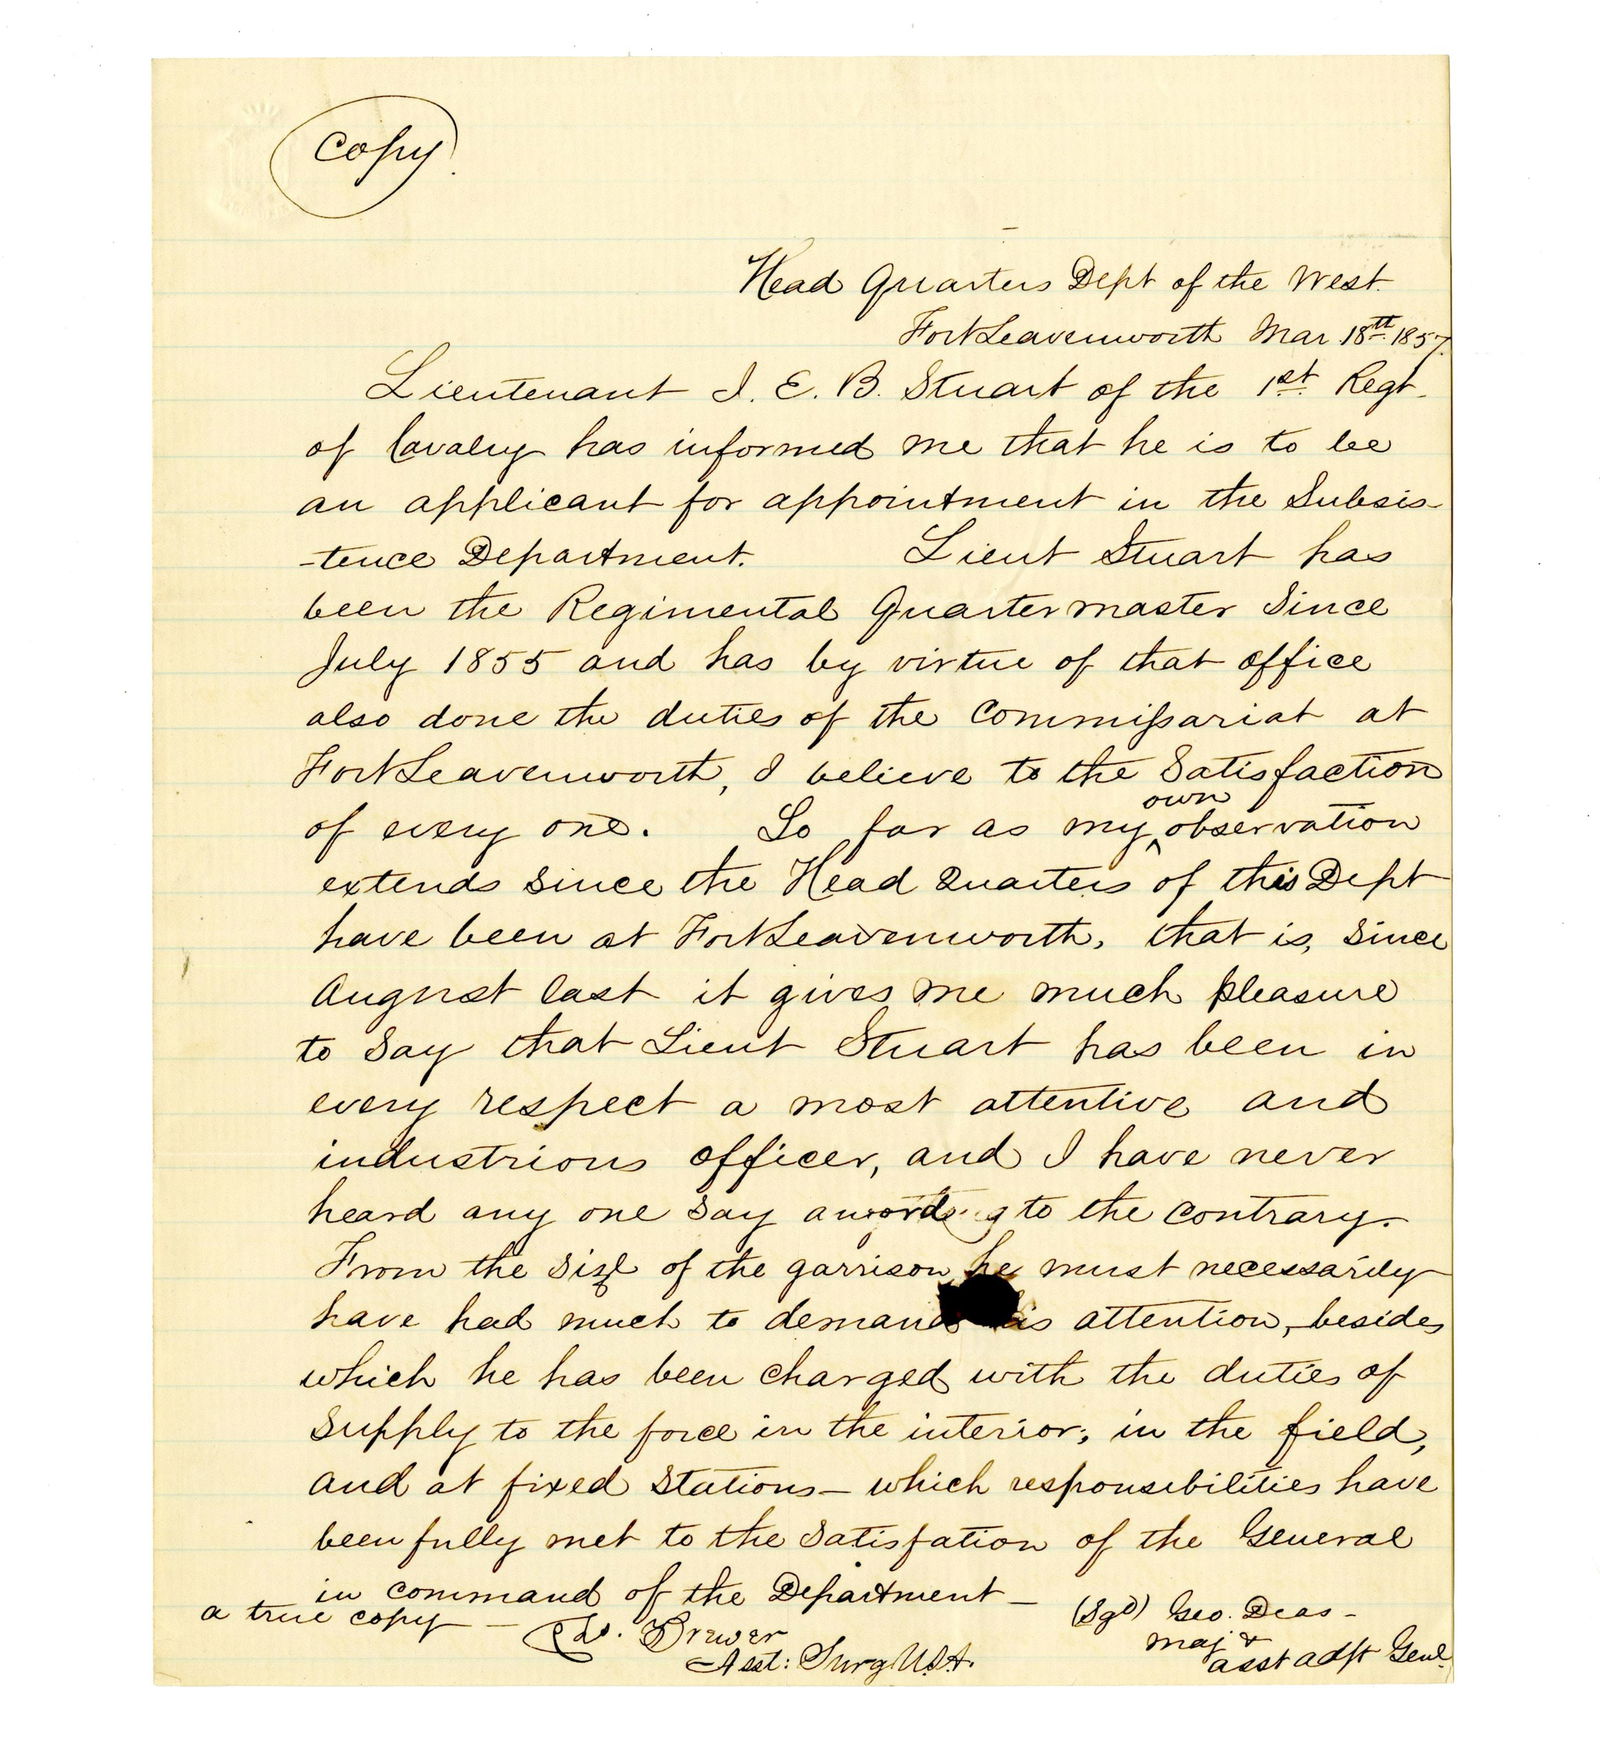 Copy.
Head Quarters Dept of the West.
Fort Leavenworth Mar 18th 1857.
Lieutenant J. E. B. Stuart of the 1st Regt.
of Cavalry has informed me that he is to be
an applicant for appointment in the Subsis-
-tence Department. Lieut Stuart has
been the Regimental Quartermaster Since
July 1855 and has by virtue of that office
also done the duties of the Commissariat at
Fort Leavenworth, I believe to the Satisfaction
of every one. So far as my own observation
extends Since the Head Quarters of this Dept
have been at Fort Leavenworth, that is, Since
August last it gives me much pleasure
to Say that Lieut Stuart has been in
every respect a most attentive and
industrious officer, and I have never
heard any one Say a word to the contrary.
From the Size of the garrison he must necessarily
have had much to demand his attention, besides
which he has been charged with the duties of
Supply to the force in the interior; in the field,
and at fixed Stations — which responsibilities have
been fully met to the Satisfation of the General
in command of the Department —
(Sgd) Geo. Deas —
Maj &
asst adjt Genl.
a true copy —
Brewer
Asst: Surg U.S.A.